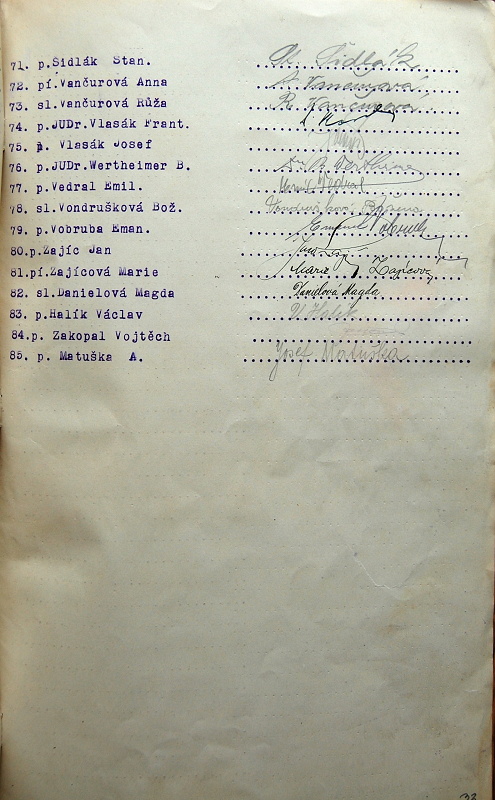 71. p.Šidlák Stan. St. Šidlák
72. pí.Vančurová Anna A. Vančurová
73. sl.Vančurová Růža R. Vančurova
74. p.JUDr.Vlasák Frant.
75. p. Vlasák Josef
76. p.JUDr.Wertheimer B. Dr B. Wertheimer
77. p.Vedral Emil. Vedral
78. sl.Vondrušková Bož. Vondrušková Božena
79. p.Vobruba Eman. Emanuel Vobruba
80.p.Zajíc Jan Jan Zajíc
81.pí.Zajícová Marie Marie Zajícová
82. sl.Danielová Magda Danielová Magda
83. p.Halík Václav V Halík
84.p. Zakopal Vojtěch
85. p. Matuška A. Josef Matuška
32